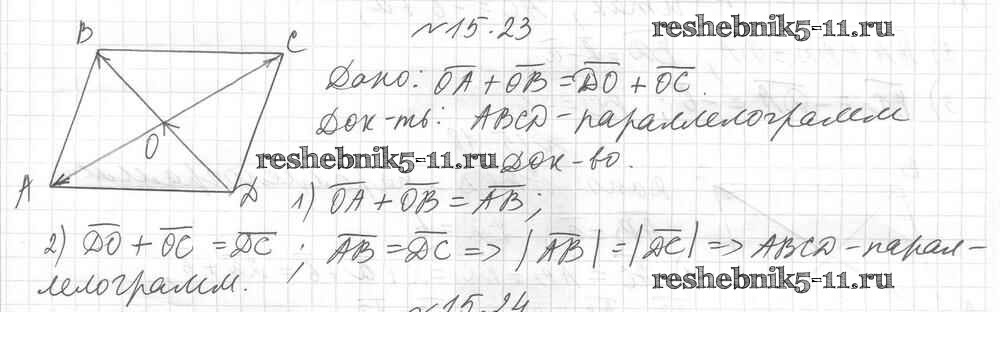 №15.23 reshebnik5-11.ru
B C
Дано: OA + OB = DO + OC.
Док-ть: ABCD - параллелограмм
O
reshebnik5-11.ru Док-во.
A D 1) OA + OB = AB;
2) DO + OC = DC; AB = DC => |AB| = |DC| => ABCD - парал-
лелограмм. reshebnik5-11.ru
№15.24